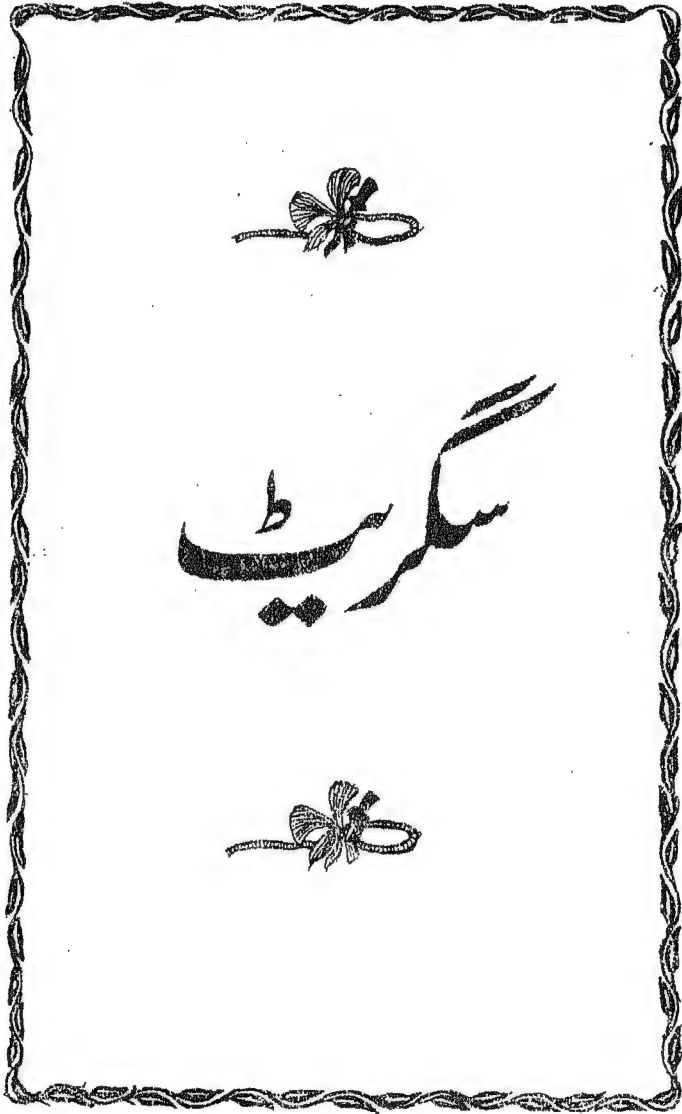 سگریٹ